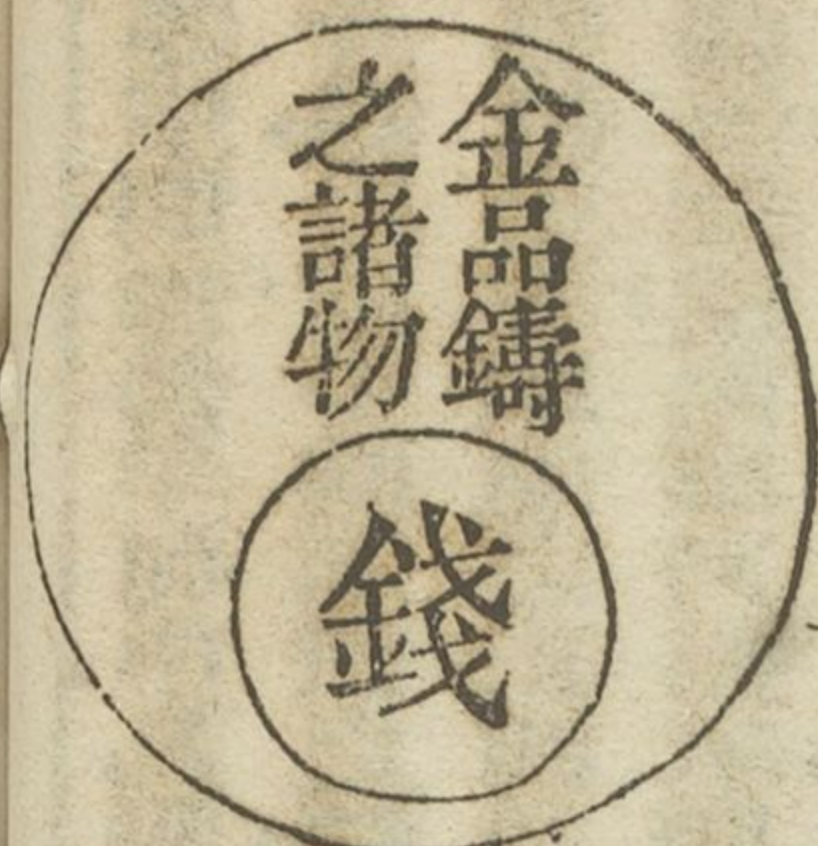 金品鑄
之諸物
錢